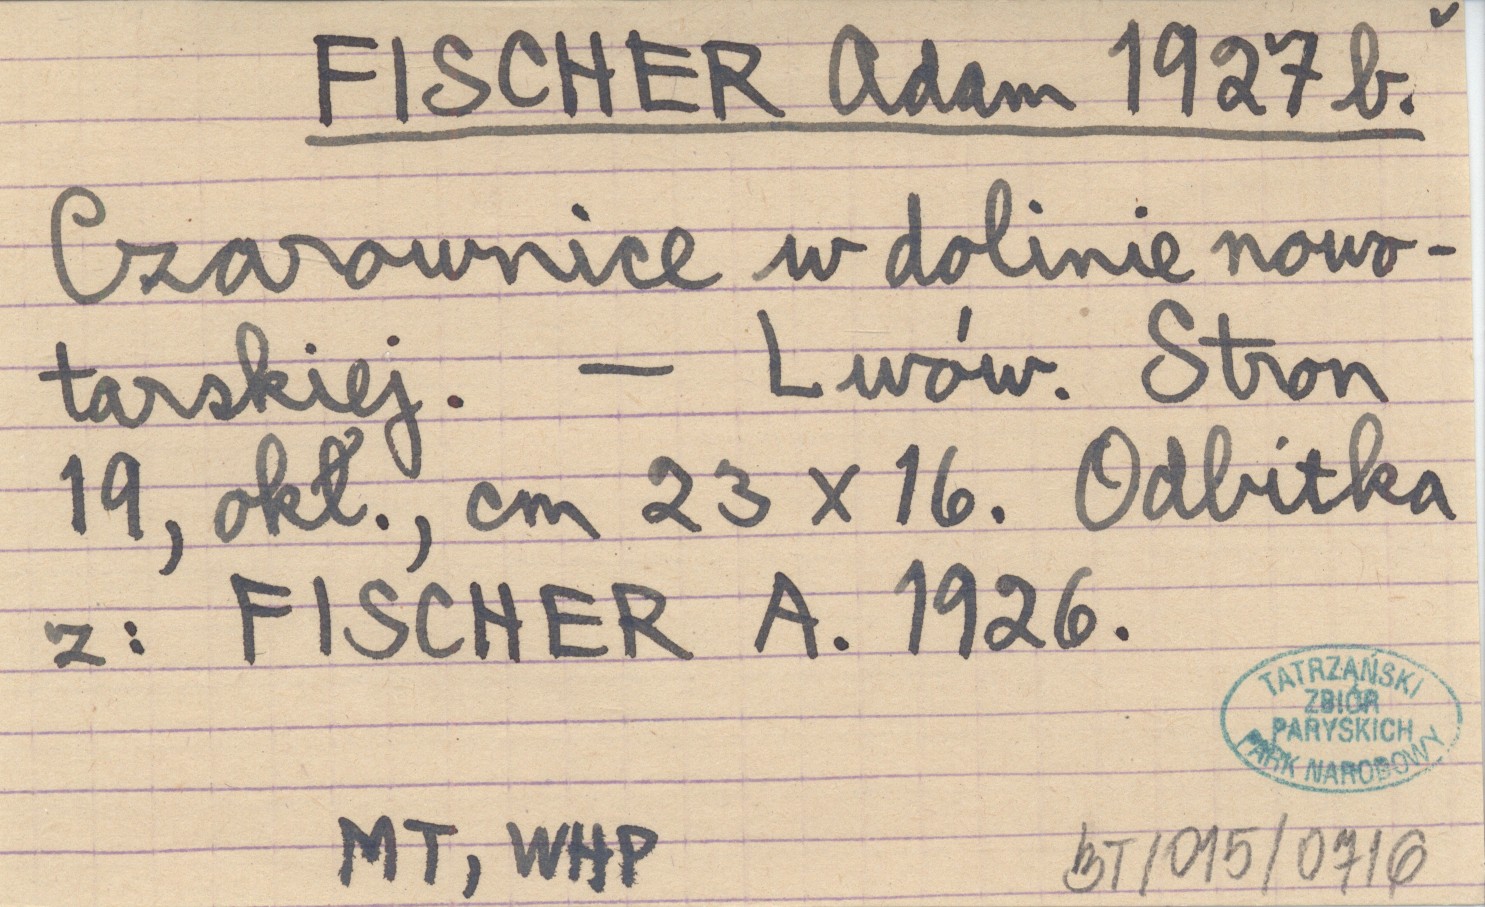 FISCHER Adam 1927 b.
Czarownice w dolinie nowo-
tarskiej. — Lwów. Stron
19, okł., cm 23 x 16. Odbitka
z: FISCHER A. 1926.
TATRZAŃSKI
ZBIÓR
PARYSKICH
PARK NARODOWY
MT, WHP
BT/015/0716